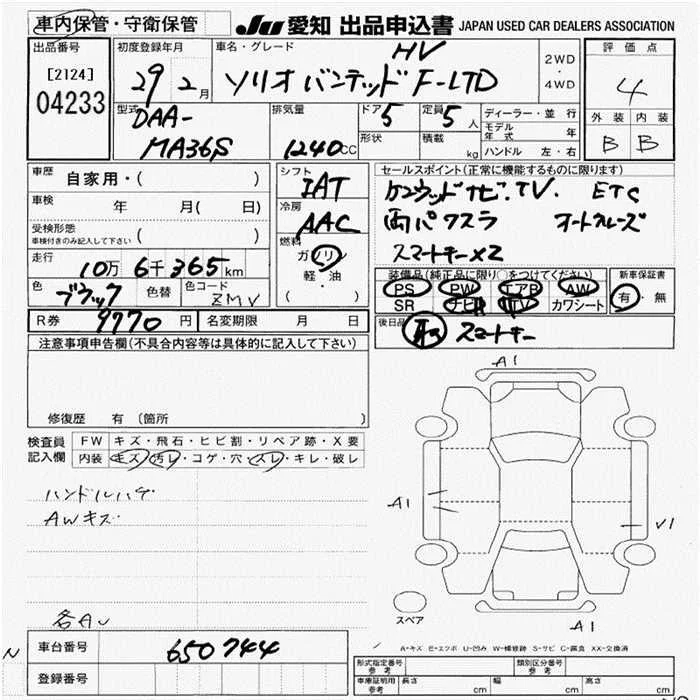 車内保管・守衛保管
JU 愛知 出品申込書 JAPAN USED CAR DEALERS ASSOCIATION
出品番号 初度登録年月 車名・グレード HV 2WD・4WD 評価点
[2124] 29 2月 ソリオ バンデッド F-LTD 4
04233
型式 DAA-MA36S 排気量 1240CC ドア 5 定員 5人 ディーラー・並行 外装 内装
形状 積載 kg モデル年式 年 B B
ハンドル 左・右
車歴 自家用・( )
車検 年 月( 日)
受検形態
車検付きのみ記入して下さい ( )
走行 10万 6千 365km
色 ブラック 色替 色コード ZMV
シフト IAT
冷房 AAC
燃料 ガソリン
軽・油
( )
セールスポイント(正常に機能するものに限ります)
ナビ.TV. ETC
両パワスラ オートクルーズ
スマートキー×2
装備品(純正品に限り○をつけてください) 新車保証書
PS PW エアB AW 有・無
SR ナビ TV カワシート
R券 9770円 名変期限 月 日
後日品 スマートキー
注意事項申告欄(不具合内容等は具体的に記入して下さい)
修復歴 有 (箇所 )
検査員記入欄 FW キズ・飛石・ヒビ割・リペア跡・X要
内装 キズ・汚レ・コゲ・穴・スレ・キレ・破レ
ハンドルハゲ
AWキズ
各AU
A1
A1
V1
A1
スペア
A-キズ E-エクボ U-凹み W-補修跡 S-サビ C-腐食 XX-交換済
N
車台番号 650744
登録番号
型式指定番号 参考 類別区分番号 参考
車庫証明用 参考 長さ cm 幅 cm 高さ cm